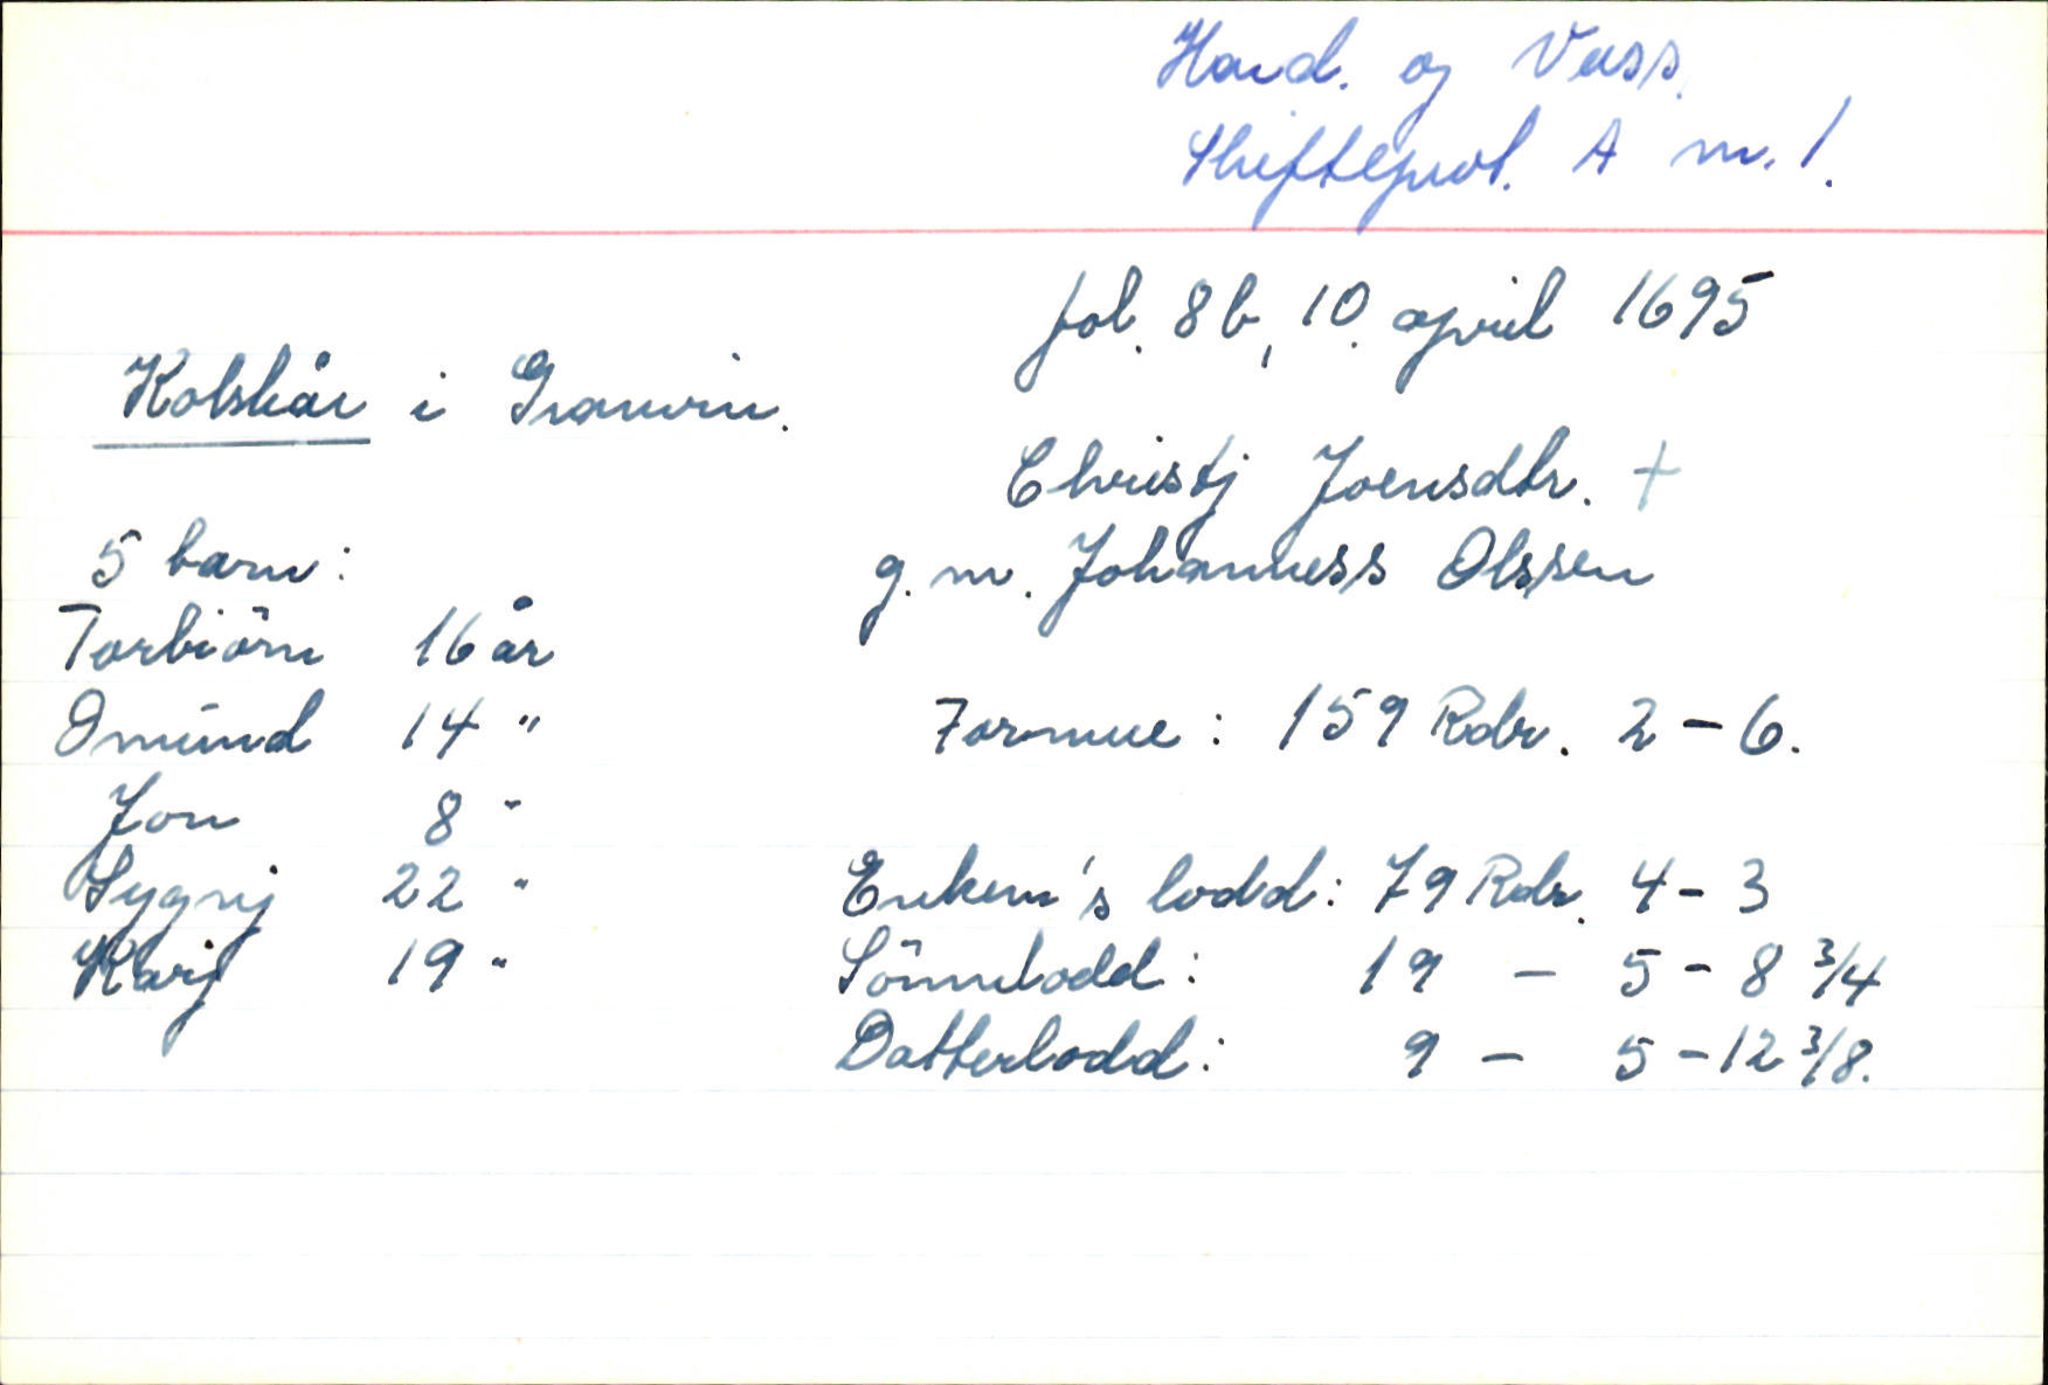 Hard. og Voss.
Skifteprot. A nr. 1.
fol. 8b, 10. april 1695
Kolskår i Granvin.
Christj Joensdtr. +
g. m. Johanness Olssen
5 barn:
Torbiörn 16 år
Omund 14 "
Jon 8 "
Sygnj 22 "
Karj 19 "
Formue: 159 Rdr. 2 - 6.
Enkem's lodd: 79 Rdr. 4 - 3
Sönnelodd: 19 - 5 - 8 3/4
Datterlodd: 9 - 5 - 12 3/8.